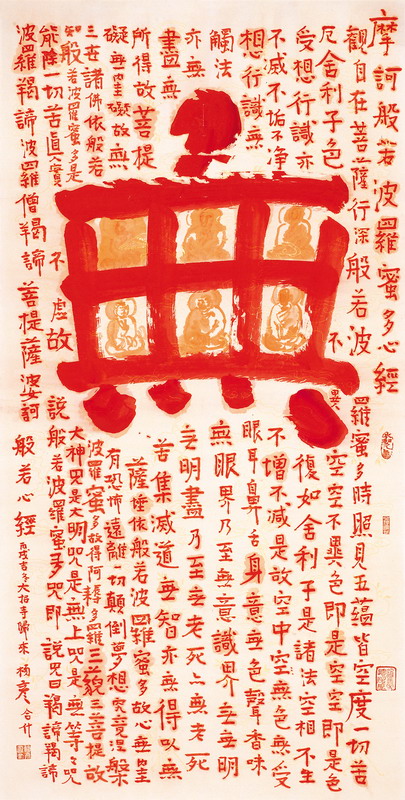 摩訶般若波羅蜜多心經
觀自在菩薩行深般若波羅蜜多時照見五蘊皆空度一切苦
厄舍利子色不異空空不異色即是空空即是色
受想行識亦復如舍利子是諸法空相不生
不滅不垢不净不增不減是故空中空無色無受
想行識無眼耳鼻舌身意無色聲香味
觸法無眼界乃至無意識界無無明
亦無無明盡乃至無老死亦無老死
盡無苦集滅道無智亦無得以無
所得故菩提薩埵依般若波羅蜜多故心無罣
礙無罣礙故無有恐怖遠離一切顛倒夢想究竟涅槃
三世諸佛依般若波羅蜜多故得阿耨多羅三藐三菩提故
知般若波羅蜜多是大神咒是大明咒是無上咒是無等等咒
能除一切苦真實不虛故說般若波羅蜜多咒即說咒曰羯諦羯諦
波羅羯諦波羅僧羯諦菩提薩婆訶般若心經
典